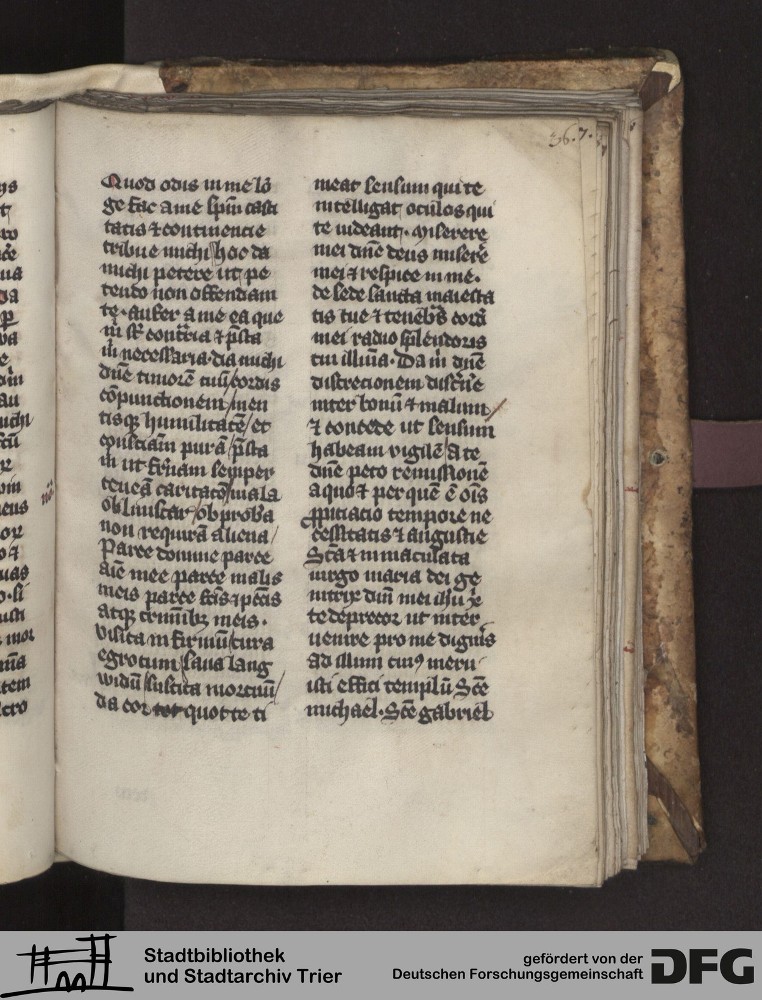 36.7.
Quod odis in me lō
ge fac a me sp̄m casti
tatis ⁊ continencie
tribue michi hoc da
michi petere ut pe
tendo non offendam
te. aufer a me ea que
m̄ s̄t cont̄ria ⁊ p̄sta
m̄ necessaria. da michi
dn̄e timorē tuū cordis
cōpunctionem men
tisq; humilitatē / et
consciām purā / p̄sta
m̄ ut fr̄nam semper
teneā caritatē mala
obliuiscar / obprob̄a
non requirā aliena /
Parce domine parce
aīe mee parce malis
meis parce fc̄is ⁊ pcc̄is
atq; criminibz meis.
visita infirmū / cura
egrotum / sana lang
widū / suscita mortuū /
da cor quot te ti
meat sensum qui te
intelligat oculos qui
te uideant. Miserere
mei dn̄e deus miser̄e
mei ⁊ respice in me.
de sede sancta maiesta
tis tue ⁊ tenebr̄s cord̄
mei radio splendoris
tui illuīa. Da m̄ dn̄e
discrecionem disc̄n̄e
inter bonū ⁊ malum /
⁊ concede ut sensum
habeam vigilē / A te
dn̄e peto remissionē
a quo ⁊ per quē ē oīs
ꝓpiciacio tempore ne
cessitatis ⁊ angustie
Sc̄a ⁊ immaculata
uirgo maria dei ge
nitrix dn̄i mei ih̄u x̄
te deprecor ut inter
uenire pro me digneris
ad illum cuiꝰ meru
isti effici templū Sc̄e
michael. Sc̄e gabriel
Stadtbibliothek
und Stadtarchiv Trier
gefördert von der
Deutschen Forschungsgemeinschaft
DFG